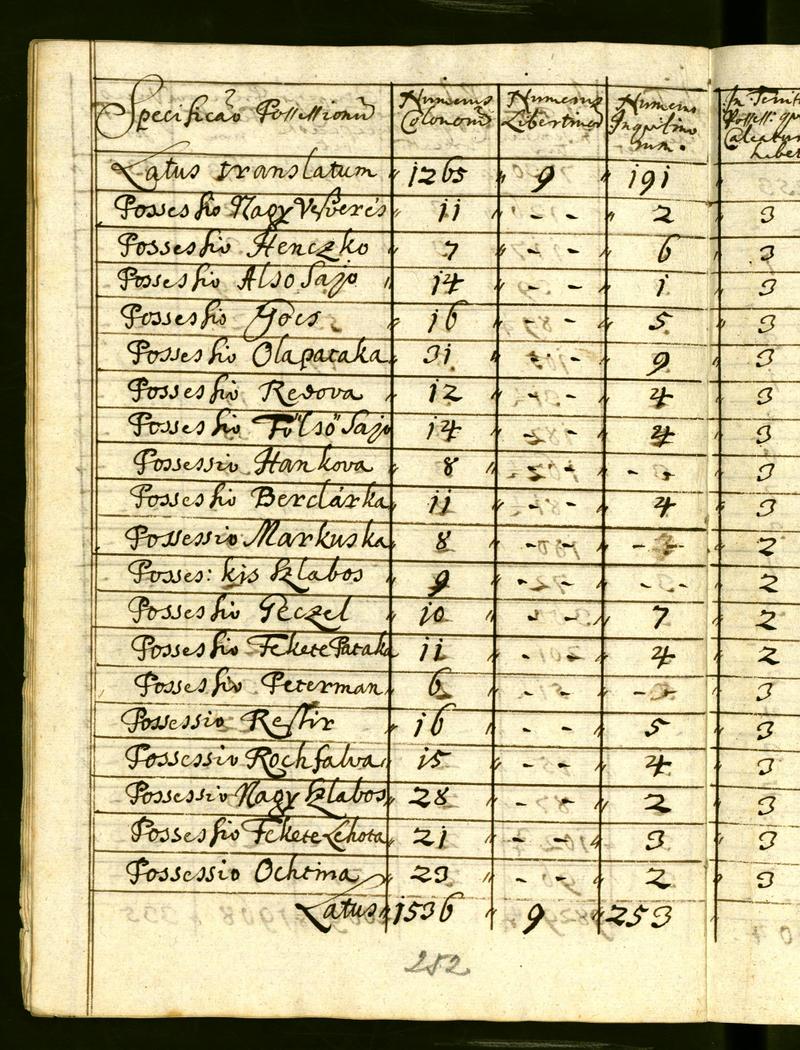 Specificaõ Possessionũ
Numerus Colonorũ
Numerus Libertinorũ
Numerus Inquilinorum.
In Territ
Possess: qu
Calcatur
habet
Latus translatum " 1265 " 9 " 191 "
Possessio Nagy Veszveres " 11 " - - " 2 " 3
Possessio Henczko " 7 " - - " 6 " 3
Possessio Also Sajo " 14 " - - " 1 " 3
Possessio Gócs " 16 " - - " 5 " 3
Possessio Olapataka " 31 " - - " 9 " 3
Possessio Redova " 12 " - - " 4 " 3
Possessio Fölsö Sajo 14 " - - " 4 " 3
Possessio Hankova " 8 " - - " - - " 3
Possessio Berdárka " 11 " - - " 4 " 3
Possessio Markuska " 8 " - - " - - " 2
Posses: kis Szlabos " 9 " - - " - - " 2
Possessio Geczel " 10 " - - " 7 " 2
Possessio Fekete Pataka 11 " - - " 4 " 2
Possessio Peterman " 6 " - - " - - " 3
Possessio Restir " 16 " - - " 5 " 3
Possessio Rochfalva " 15 " - - " 4 " 3
Possessio Nagy Szlabos " 28 " - - " 2 " 3
Possessio Fekete Lehota " 21 " - - " 3 " 3
Possessio Ochtina " 23 " - - " 2 " 3
Latus " 1536 " 9 " 253 "
252